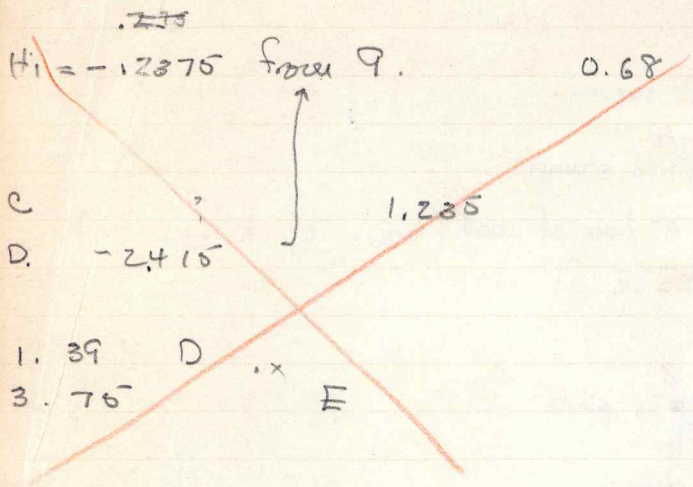 H1 = -.2375 from 9. 0.68
C ? 1.235
D. -2.415
1. 39 D .x
3. 75 E